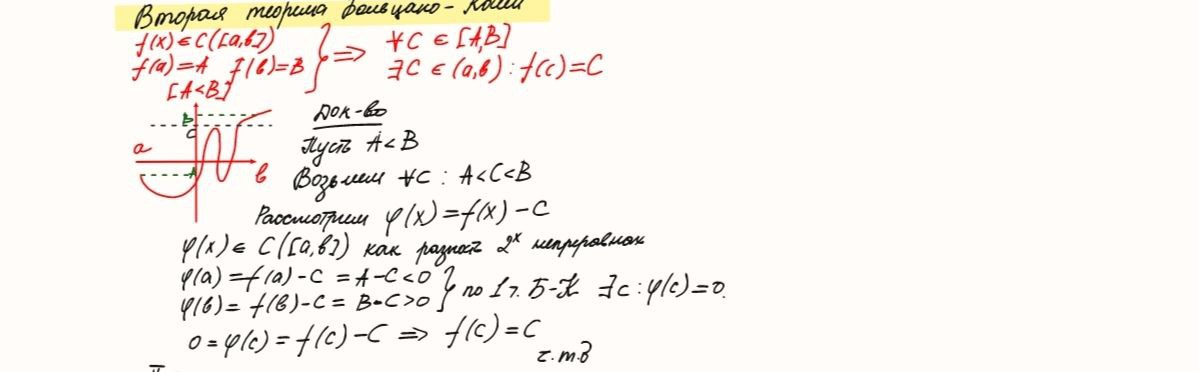 Вторая теорема Больцано-Коши
f(x)∈C([a,b]) } ⟹ ∀C ∈ [A,B]
f(a)=A f(b)=B } ∃c ∈ (a,b) : f(c)=C
[A<B]
B
C
a
A
b
Док-во
Пусть A<B
Возьмем ∀C : A<C<B
Рассмотрим φ(x)=f(x)-C
φ(x)∈ C([a,b]) как разность 2х непрерывных
φ(a)=f(a)-C = A-C<0 } по 1 т. Б-К ∃c : φ(c)=0.
φ(b)= f(b)-C= B-C>0 }
0=φ(c)=f(c)-C ⟹ f(c)=C
ч.т.д